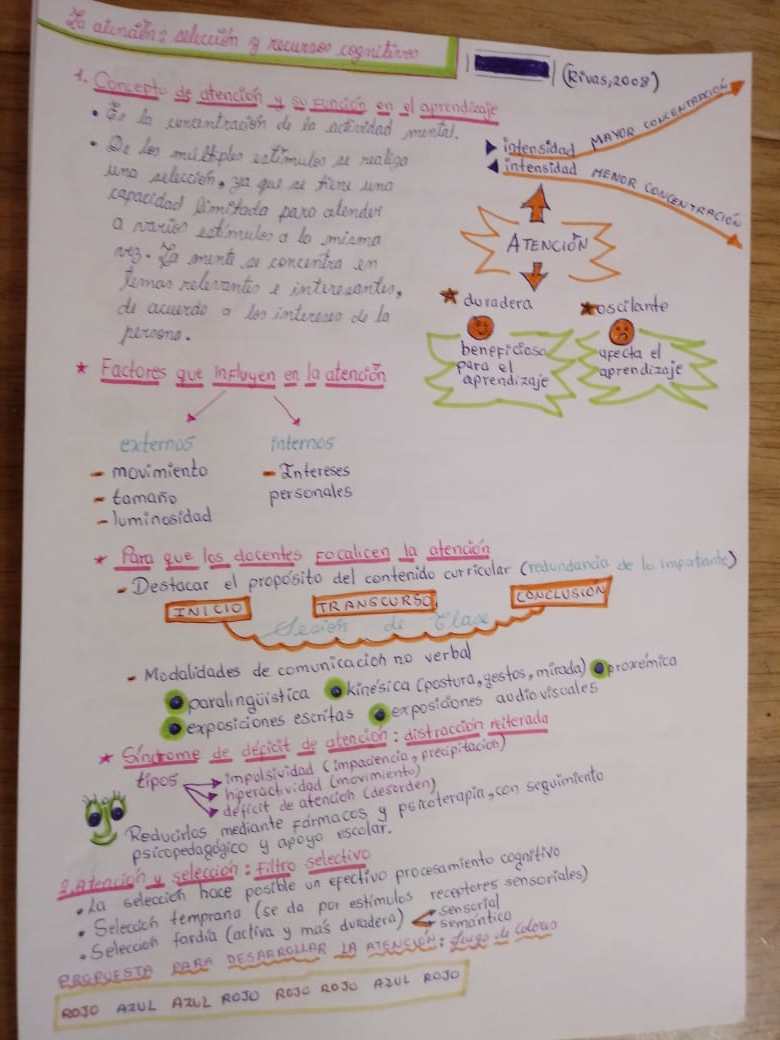 La atención: selección y recursos cognitivos
(Rivas, 2008)
1. Concepto de atención y su función en el aprendizaje
• Es la concentración de la actividad mental.
• De los múltiples estímulos se realiza
una selección, ya que se tiene una
capacidad limitada para atender
a varios estímulos a la misma
vez. La mente se concentra en
temas relevantes e interesantes,
de acuerdo a los intereses de la
persona.
intensidad MAYOR CONCENTRACIÓN
intensidad MENOR CONCENTRACIÓN
ATENCIÓN
duradera
oscilante
beneficiosa
para el
aprendizaje
afecta el
aprendizaje
* Factores que influyen en la atención
externos
- movimiento
- tamaño
- luminosidad
internos
- Intereses
personales
* Para que los docentes focalicen la atención
- Destacar el propósito del contenido curricular (redundancia de lo importante)
INICIO TRANSCURSO CONCLUSIÓN
Sesión de Clase
- Modalidades de comunicación no verbal
paralingüística kinésica (postura, gestos, mirada) proxémica
exposiciones escritas exposiciones audiovisuales
* Síndrome de déficit de atención: distracción reiterada
tipos
impulsividad (impaciencia, precipitación)
hiperactividad (movimiento)
déficit de atención (desorden)
Reducirlos mediante fármacos y psicoterapia, con seguimiento
psicopedagógico y apoyo escolar.
2. Atención y selección: Filtro selectivo
• La selección hace posible un efectivo procesamiento cognitivo
• Selección temprana (se da por estímulos receptores sensoriales)
• Selección tardía (activa y más duradera)
sensorial
semántico
PROPUESTA PARA DESARROLLAR LA ATENCIÓN: Juego de colores
ROJO AZUL AZUL ROJO ROJO ROJO AZUL ROJO